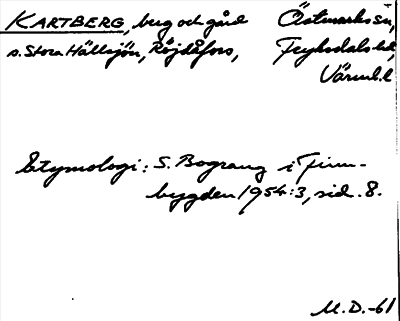 KARTBERG, berg och gård Östmarks sn,
s. Stora Hällsjön, Röjdåfors, Fryksdals hd,
Värml. l
Etymologi: S. Bograng i Finn-
bygden 1954:3, sid. 8.
M.D.-61